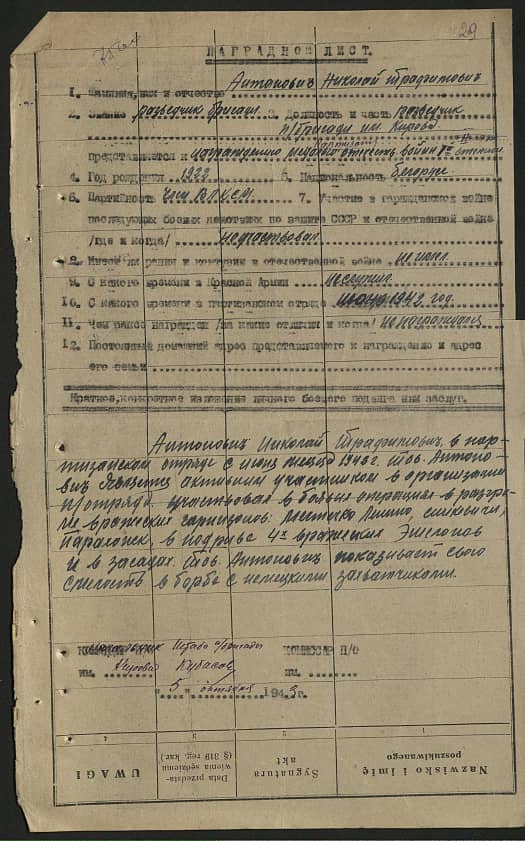 29
НАГРАДНОЙ ЛИСТ.
1. Фамилия, имя и отчество Антонович Николай Трафимович
2. Звание разведчик бригады 3. Должность и часть разведчик
п/бригады им. Кирова
представляется к награждению медалью отечеств. войны степени
4. Год рождения 1922 5. Национальность белорус
6. Партийность член ВЛКСМ 7. Участие в гражданской войне
последующих боевых действиях по защите СССР и отечественной войне
/где и когда/ неучаствовал
8. Имеет ли ранения и контузии в отечественной войне. не имел.
9. С какого времени в Красной Армии неслужил.
10. С какого времени в партизанском отряде 1942 год.
11. Чем ранее награжден /за какие отличия и когда/ не награждался
12. Постоянный домашний адрес представляемого к награждению и адрес
его семьи
Краткое, конкретное изложение личного боевого подвига или заслуг.
Антонович Николай Трафимович, в пар-
тизанском отряде с июня месяца 1942г. тов. Антоно-
вич является активным участником в организации
п/отряда участвовал в боевых операциях в разгро-
ме вражеских гарнизонов: местечко
в подрыве 4х вражеских эшелонов
и в засадах. Тов. Антонович показывает свою
смелость в борьбе с немецкими захватчиками.
Штаба п/бригады КОМИССАР П/О
им. Кирова им.
"5" октября 1943г.
4 3 2 1
UWAGI
Data przedsta-
wienia sędziemu
(§ 319 reg. kar.)
Sygnatura
akt
Nazwisko i imię
poszukiwanego